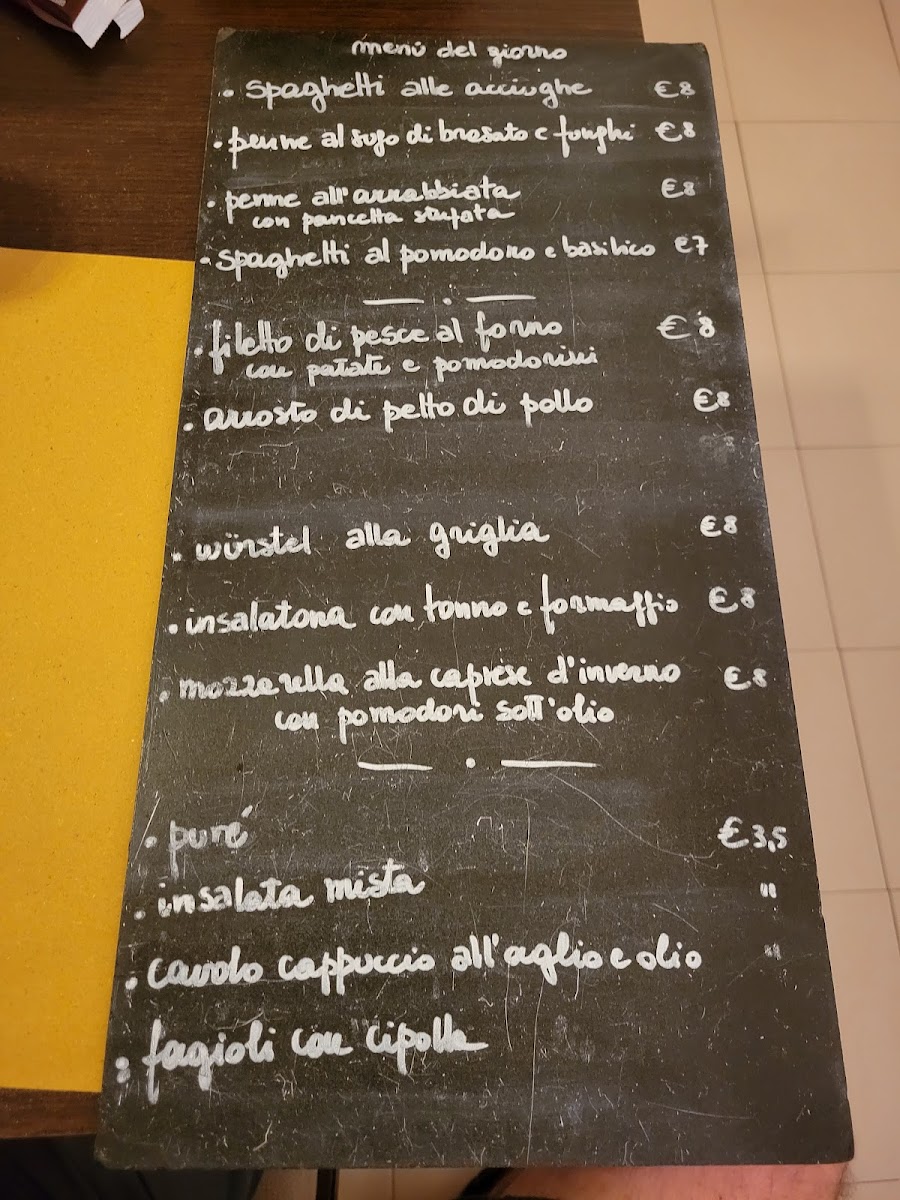 menù del giorno
• spaghetti alle acciughe € 8
• penne al sugo di brasato e funghi € 8
• penne all'arrabbiata € 8
con pancetta stufata
• spaghetti al pomodoro e basilico € 7
• filetto di pesce al forno € 8
con patate e pomodorini
• arrosto di petto di pollo € 8
• würstel alla griglia € 8
• insalatona con tonno e formaggio € 8
• mozzarella alla caprese d'inverno € 8
con pomodori sott'olio
• purè € 3,5
• insalata mista "
• cavolo cappuccio all'aglio e olio "
• fagioli con cipolla